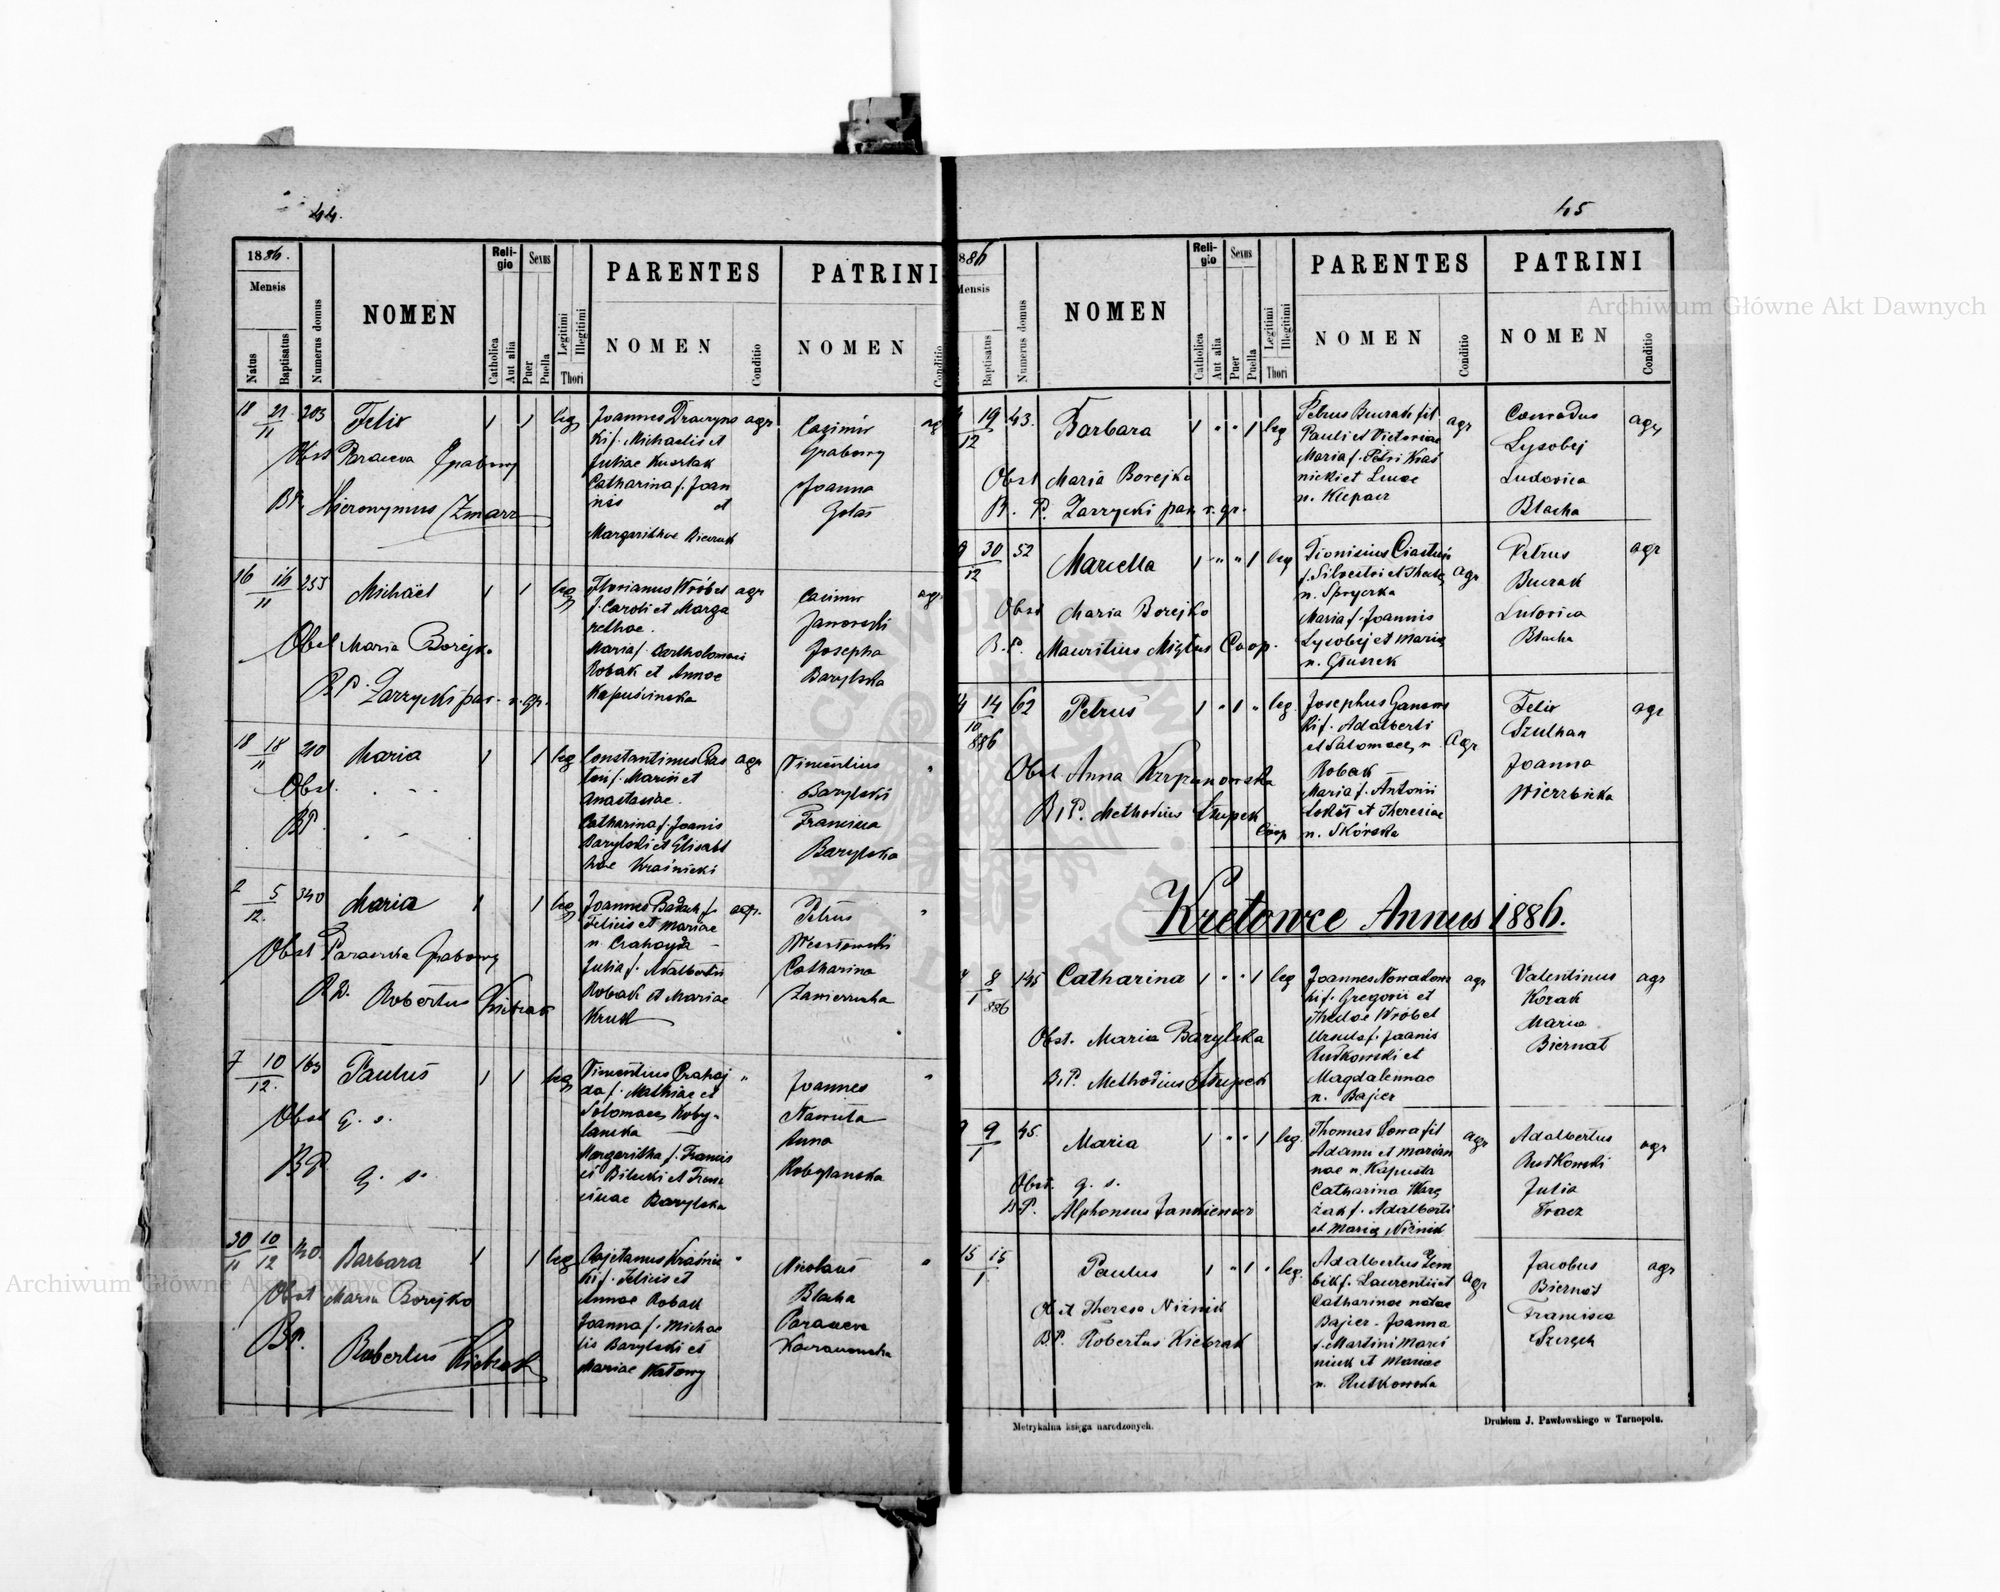 44.
1886.
Mensis
Natus
Baptisatus
Numerus domus
NOMEN
Religio
Catholica
Aut alia
Sexus
Puer
Puella
Legitimi
Illegitimi
Thori
PARENTES
NOMEN
Conditio
PATRINI
NOMEN
Conditio
18 21/11 203 Felix 1 1 leg
Obst Parasceva Grabowy
BP. Hieronymus
Joannes agr
ki f. Michaelis et
Juliae
Catharina f. Joan
nis et
Margarithae
Casimir
Grabowy
Joanna
Golas
16 16/11 255 Michäel 1 1 leg
Obst Maria Borejko
B.P. Zarzycki par. r. gr.
Florianus Wróbel agr
f. Caroli et Marga
rethae.
Maria f. Bartholomaei
Robak et Annae
Kapuścinska
Casimir agr
Jaworski
Josepha
Barylska
18 18/11 210 Maria 1 1 leg
Obst. - -
BP. - -
Constantinus Cias agr
toń f. Marii et
Anastasiae.
Catharina f. Joanis
Barylski et Elisabe
thae Kraśnicki
Vincentius "
Barylski
Francisca
Barylska
2 5/12. 340 Maria 1 1 leg
Obst Parasceva Grabowy
B.P. Robertus Kiebzak
Joannes f. agr.
Felicis et Mariae
n. Czahajda
Julia f. Adalberti
Robak et Mariae
Kruk
Petrus "
Catharina
7 10/12. 163 Paulus 1 1 leg
Obst q. s.
BP q. s.
Vincentius Czahaj "
da f. Mathiae et
Salomaee Koby-
lanska
Margaritha f. Francis
ci Bilucki et Fran
ciscae Barylska
Joannes "
Nawrūta
Anna
Kobylanska
30/11 10/12 140 Barbara 1 1 leg
Obst Maria Borejko
BP. Robertus Kiebzak
Cajetanus Kraśnic "
ki f. Felicis et
Annae Robak
Joanna f. Michae
lis Barylski et
Mariae Watowy
Nicolaus "
Blacha
Parasceva
45
1886
Mensis
Baptisatus
Numerus domus
NOMEN
Religio
Catholica
Aut alia
Sexus
Puer
Puella
Legitimi
Illegitimi
Thori
PARENTES
NOMEN
Conditio
PATRINI
NOMEN
Conditio
19/12 43. Barbara 1 " " 1 leg
Obst Maria Borejko
B. P. Zarzycki par. r. gr.
Petrus Burak fil agr
Pauli et Victoriae
Maria f. Petri Kraś
nicki et Lucae
n. Klepacz
Conradus agr
Lysobej
Ludovica
Blacha
30/12 52 Marcella 1 " " 1 leg
Obst Maria Borejko
B.P. Mauritius Coop.
Dionisius Ciastoń agr
f. Silvestri et Theclae
n. Spryczka
Maria f. Joannis
Lysobej et Mariae
n. Głuszek
Petrus agr
Burak
Ludovica
Blacha
14/10 886 62 Petrus 1 " 1 " leg
Obst. Anna Krzyzanowska
B.P. Methodius Słupek
Coop
Josephus
ki f. Adalberti
et Salomaee n. agr
Robak
Maria f. Antonii
et Theresiae
n. Skórska
Felix agr
Szulhan
Joanna
Wierzbicka
Kretowce Annus 1886.
8/1 886 145 Catharina 1 " " 1 leg
Obst. Maria Barylska
B.P. Methodius Słupek
Joannes Nowakows agr
ki f. Gregorii et
Theclae Wróbel
Ursula f. Joanis
Rutkowski et
Magdalennae
n. Bajer
Valentinus agr
Kozak
Maria
Biernat
9 9/1 45. Maria 1 " " 1 leg.
Obst. q. s.
B.P. Alphonsus Jankiewicz
Thomas Sowa fil agr
Adami et Marian
nae n. Kapusta
Catharina Warę
żak f. Adalberti
et Mariae Niżnik
Adalbertus agr
Rutkowski
Julia
Tracz
15 15/1 Paulus 1 " 1 " leg.
Obst Theresa Niżnik
BP. Robertus Kiebzak
Adalbertus Zem
bik f. Laurentii et agr
Catharinae natae
Bajer - Joanna
f. Martini Marci
niuk et Mariae
n. Rutkowska
Jacobus agr
Biernat
Francisca
Metrykalna księga narodzonych.
Drukiem J. Pawłowskiego w Tarnopolu.
Archiwum Główne Akt Dawnych
Archiwum Główne Akt Dawnych